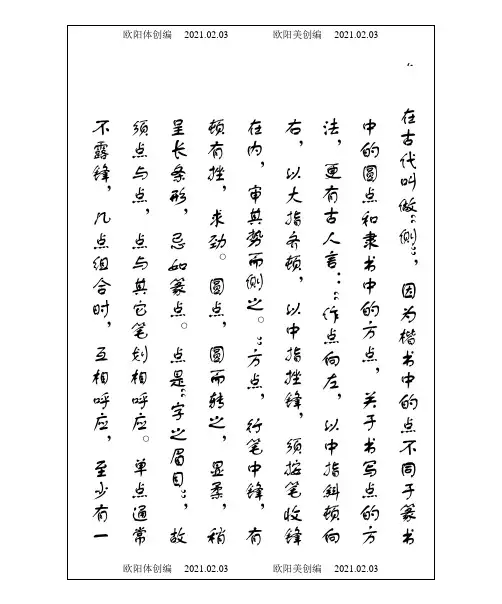 欧阳体创编 2021.02.03 欧阳美创编 2021.02.03
在古代叫做“侧”，因为楷书中的点不同于篆书
中的圆点和隶书中的方点，关于书写点的方
法，更有古人言：“作点向左，以中指斜顿向
右，以大指齐顿，以中指挫锋，须按笔收锋
在内，审其势而侧之。”方点，行笔中锋，有
顿有挫，求劲。圆点，圆而转之，显柔，稍
呈长条形，忌如篆点。点是“字之眉目”，故
须点与点，点与其它笔划相呼应。单点通常
不露锋，几点组合时，互相呼应，至少有一
欧阳体创编 2021.02.03 欧阳美创编 2021.02.03